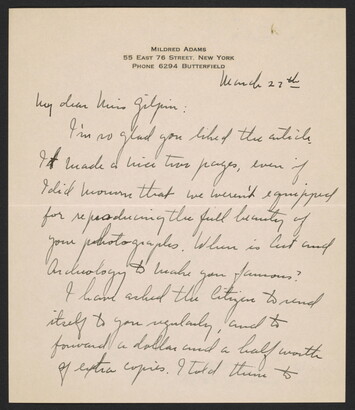 MILDRED ADAMS
55 EAST 76 STREET, NEW YORK
PHONE 6294 BUTTERFIELD
March 27th
My dear Miss Gilpin:
I'm so glad you liked the article.
It made a nice two pages, even if
I did mourn that we weren't equipped
for reproducing the full beauty of
your photographs. When is Art and
Archeology to make you famous?
I have asked the Citizen to send
itself to you regularly, and to
forward a dollar and a half worth
of extra copies. I told them to